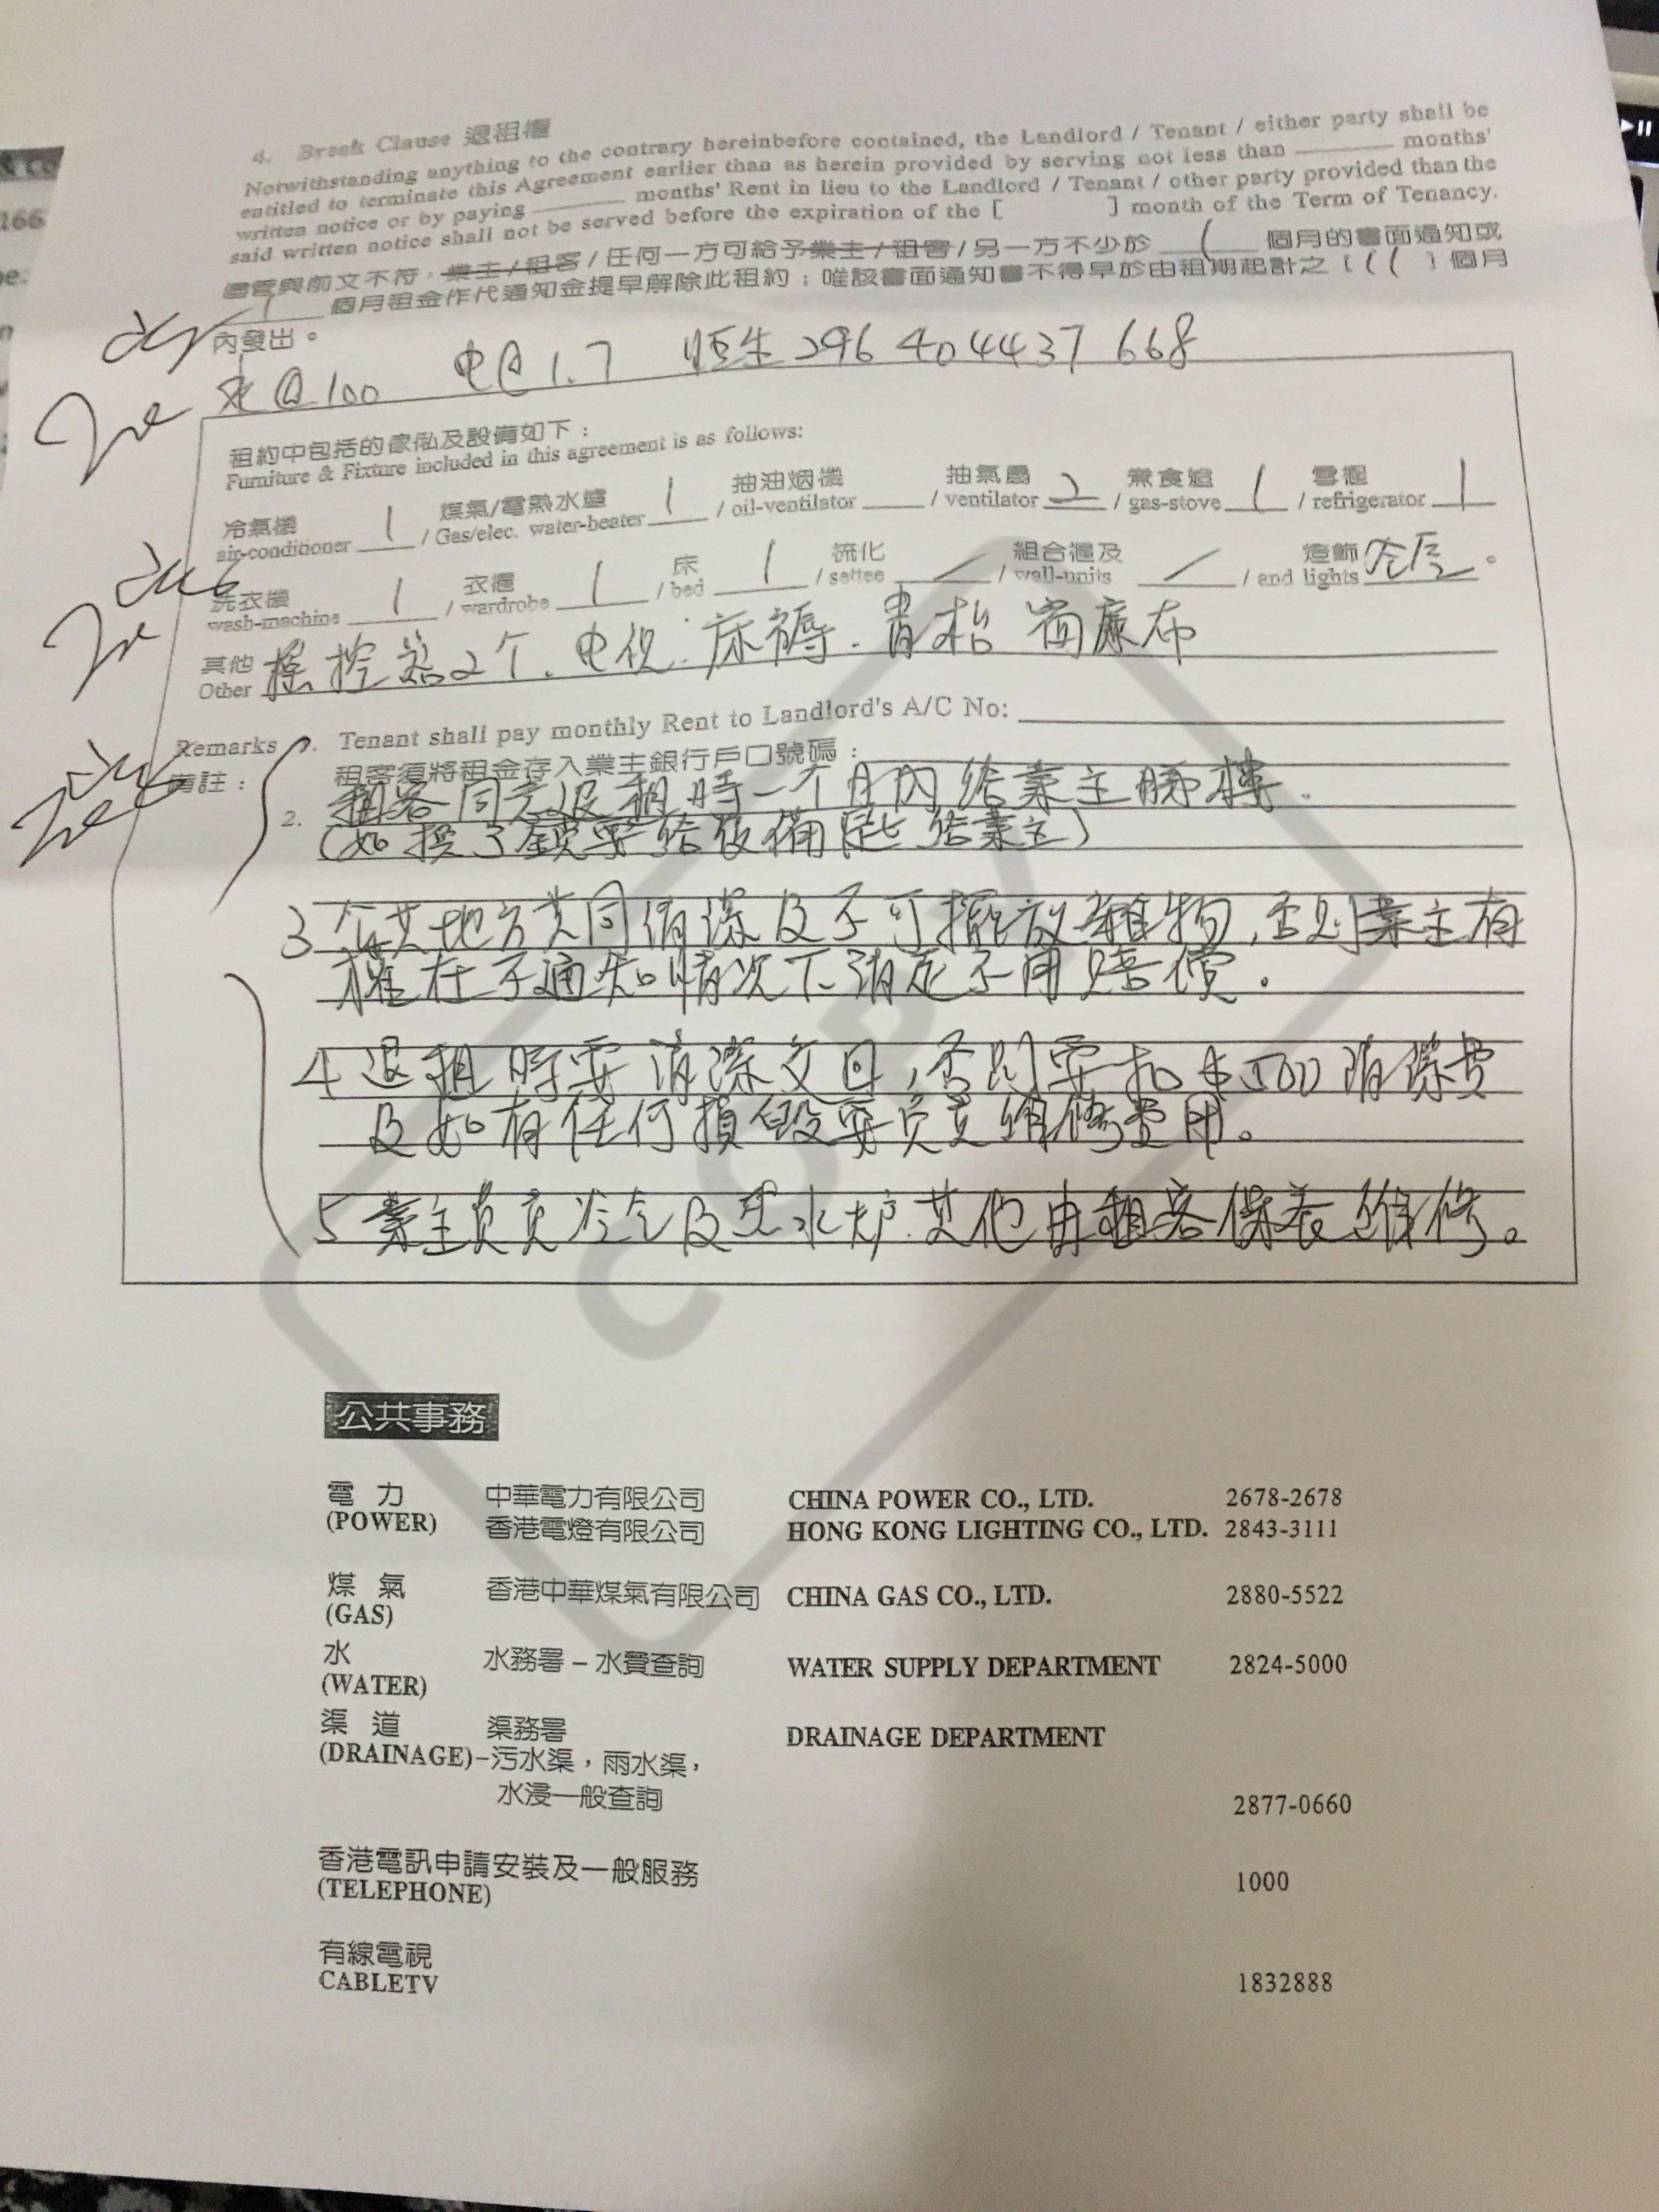 4. Break Clause 退租權
Notwithstanding anything to the contrary hereinbefore contained, the Landlord / Tenant / either party shall be
entitled to terminate this Agreement earlier than as herein provided by serving not less than ______ months'
written notice or by paying ______ months' Rent in lieu to the Landlord / Tenant / other party provided than the
said written notice shall not be served before the expiration of the [ ] month of the Term of Tenancy.
儘管與前文不符，業主/租客/任何一方可給予業主/租客/另一方不少於 1 個月的書面通知或
1 個月租金作代通知金提早解除此租約；唯該書面通知書不得早於由租期起計之 [ 11 ] 個月
內發出。
水@100 电@1.7 恒生 296 404437 668
租約中包括的傢俬及設備如下：
Furniture & Fixture included in this agreement is as follows:
冷氣機 煤氣/電熱水爐 抽油烟機 抽氣扇 煮食爐 雪櫃
air-conditioner 1 / Gas/elec. water-heater 1 / oil-ventilator ____ / ventilator 2 / gas-stove 1 / refrigerator 1
洗衣機 衣櫃 床 流化 組合櫃及 燈飾
wash-machine 1 / wardrobe 1 / bed 1 / settee / wall-units / and lights 全屋。
其他 搖控器2个、电视、床褥、書枱 窗廉布
Other
Remarks 1. Tenant shall pay monthly Rent to Landlord's A/C No:
備註： 租客須將租金存入業主銀行戶口號碼：
2. 租客同意退租時一个月內給業主睇樓.
(如換了鎖要給後備匙給業主)
3 公共地方共同清潔及不可擺放雜物,否則業主有
權在不通知情況下清走不用賠償.
4 退租時要清潔交回,否則要扣$500清潔費
及如有任何損毀要負責維修費用。
5 業主負責冷气及热水炉.其他由租客保養維修。
COPY
公共事務
電 力 中華電力有限公司 CHINA POWER CO., LTD. 2678-2678
(POWER) 香港電燈有限公司 HONG KONG LIGHTING CO., LTD. 2843-3111
煤 氣 香港中華煤氣有限公司 CHINA GAS CO., LTD. 2880-5522
(GAS)
水 水務署 – 水費查詢 WATER SUPPLY DEPARTMENT 2824-5000
(WATER)
渠 道 渠務署 DRAINAGE DEPARTMENT
(DRAINAGE) –污水渠，雨水渠，
水浸一般查詢 2877-0660
香港電訊申請安裝及一般服務 1000
(TELEPHONE)
有線電視
CABLETV 1832888